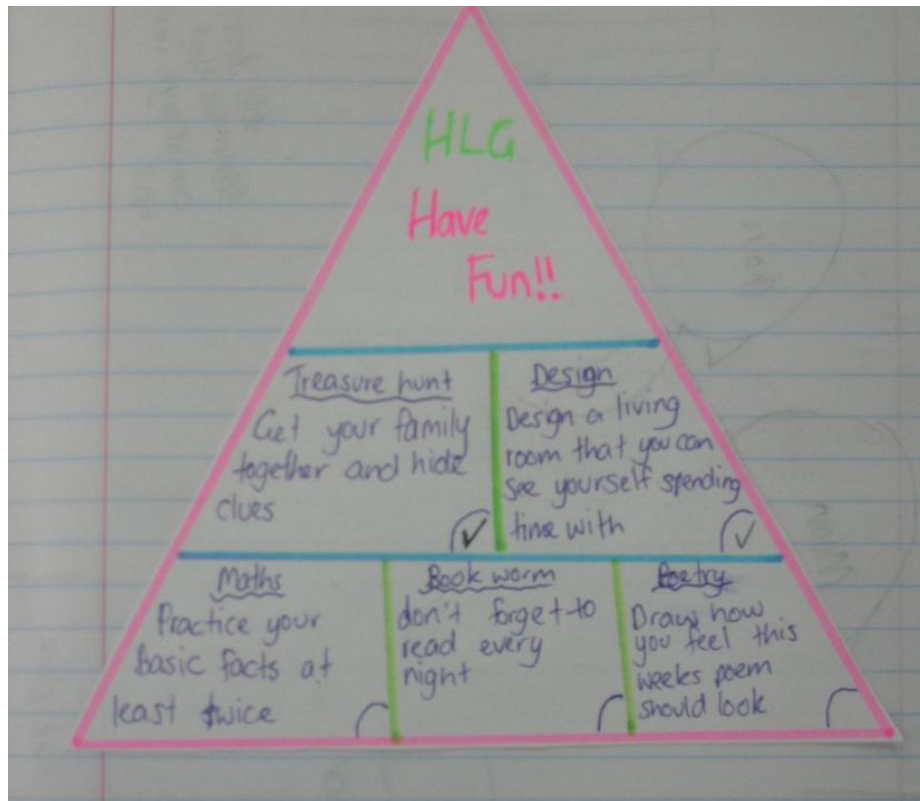 HLG
Have
Fun!!
Treasure hunt
Get your family
together and hide
clues
Design
Design a living
room that you can
see yourself spending
time with
Maths
Practice your
basic facts at
least twice
Book worm
don't forget to
read every
night
Poetry
Draw how
you feel this
weeks poem
should look